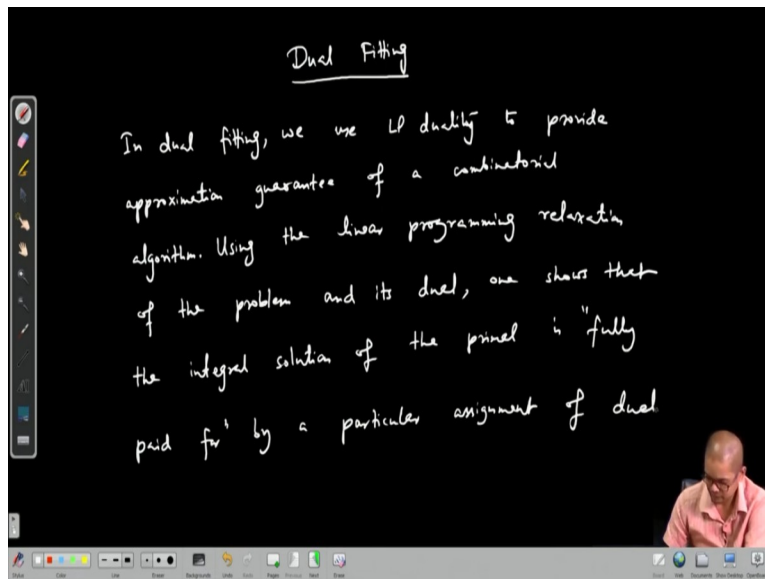 Dual Fitting
In dual fitting, we use LP duality to provide
approximation guarantee of a combinatorial
algorithm. Using the linear programming relaxation
of the problem and its dual, one shows that
the integral solution of the primal is "fully
paid for" by a particular assignment of dual